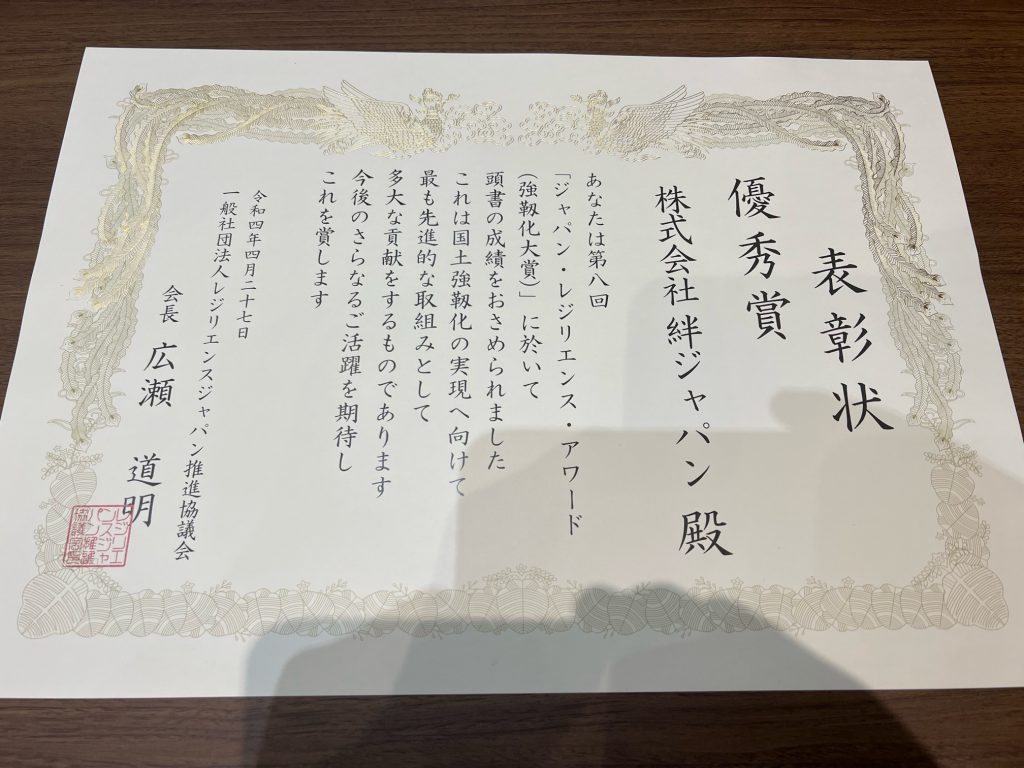 表彰状
優秀賞
株式会社 絆ジャパン 殿
あなたは第八回
「ジャパン・レジリエンス・アワード
(強靱化大賞)」に於いて
頭書の成績をおさめられました
これは国土強靱化の実現へ向けて
最も先進的な取組みとして
多大な貢献をするものであります
今後のさらなるご活躍を期待し
これを賞します
令和四年四月二十七日
一般社団法人レジリエンスジャパン推進協議会
会長 広瀬 道明